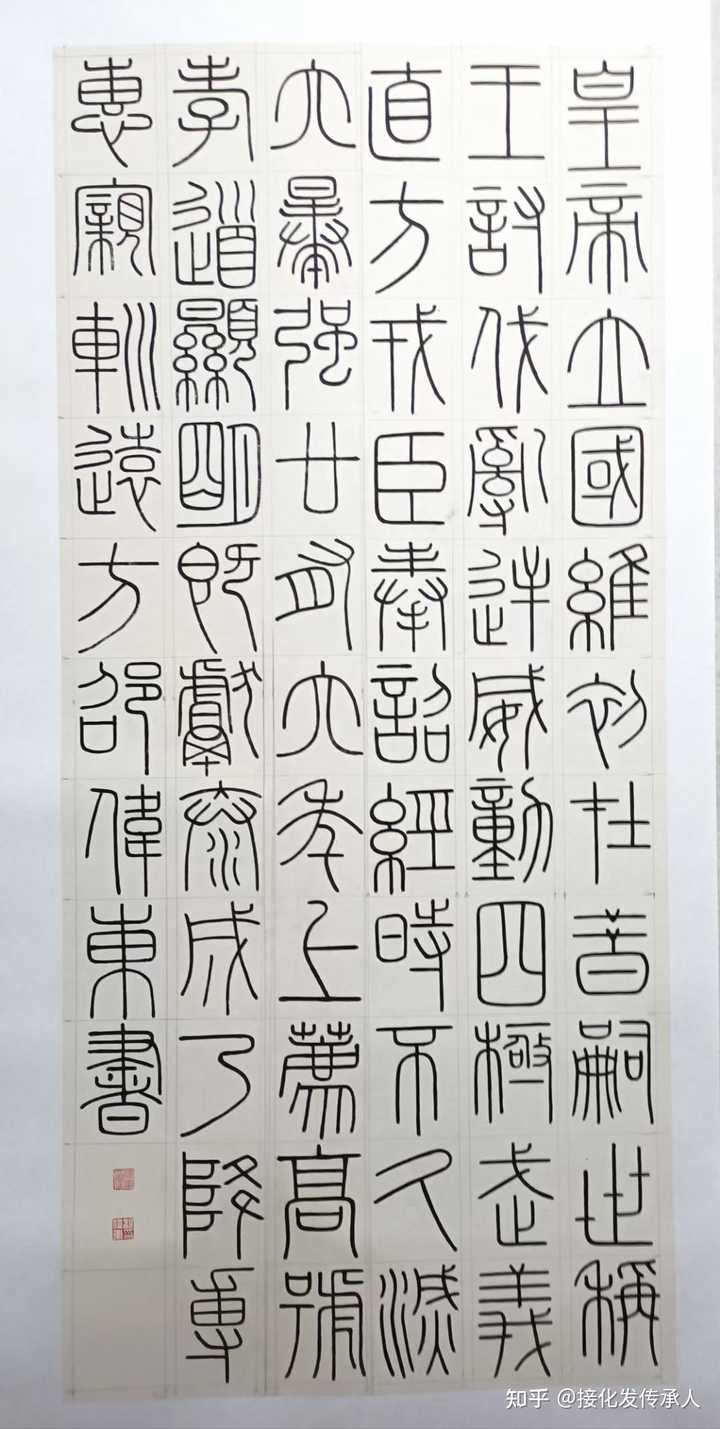 皇帝立國維初在昔嗣世稱
王討伐亂逆威動四極武義
直方戎臣奉詔經時不久滅
六暴強廿有六年上薦高號
孝道顯明既獻泰成乃降專
惠親巡遠方邵偉東書
知乎 @接化发传承人